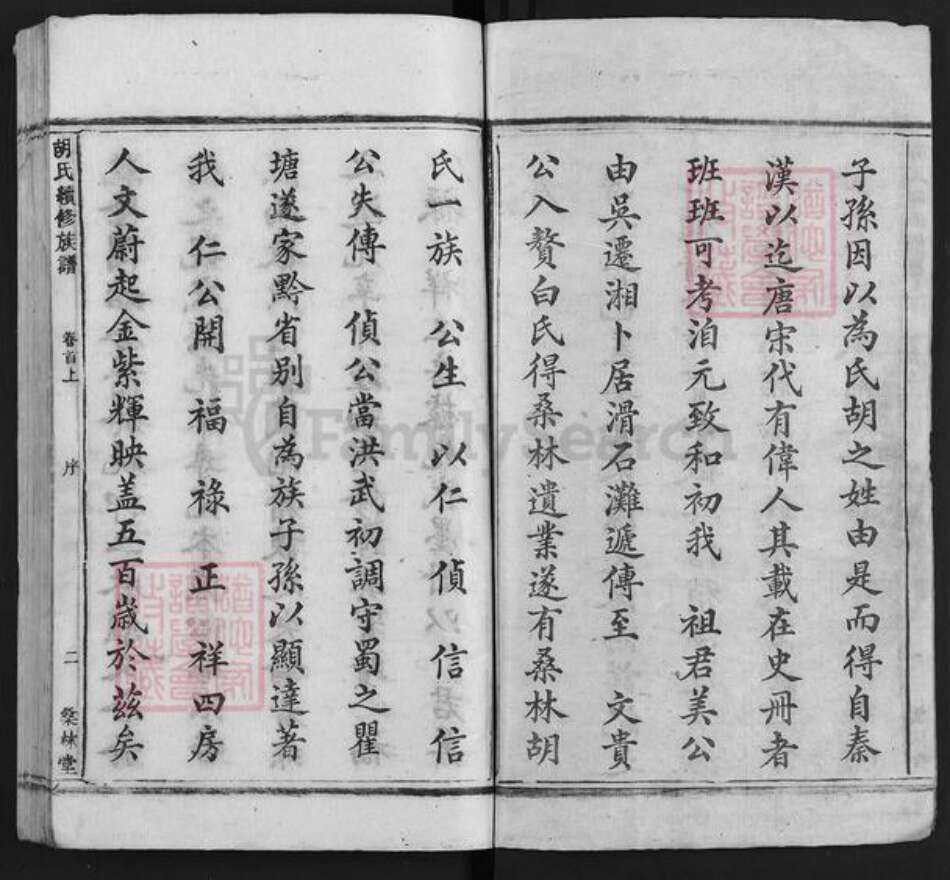 子孫因以為氏胡之姓由是而得自秦
漢以迄唐宋代有偉人其載在史冊者
班班可考洎元致和初我 祖君美公
由吳遷湘卜居滑石灘遞傳至 文貴
公入贅白氏得桑林遺業遂有桑林胡
氏一族 公生 以仁 偵 信 信
公失傳 偵公當洪武初調守蜀之瞿
塘遂家黔省别自為族子孫以顯達著
我 仁公開 福 祿 正 祥四房
人文蔚起金紫輝映盖五百歲於茲矣
胡氏續修族譜 卷首上 序 二 桑林堂
FamilySearch